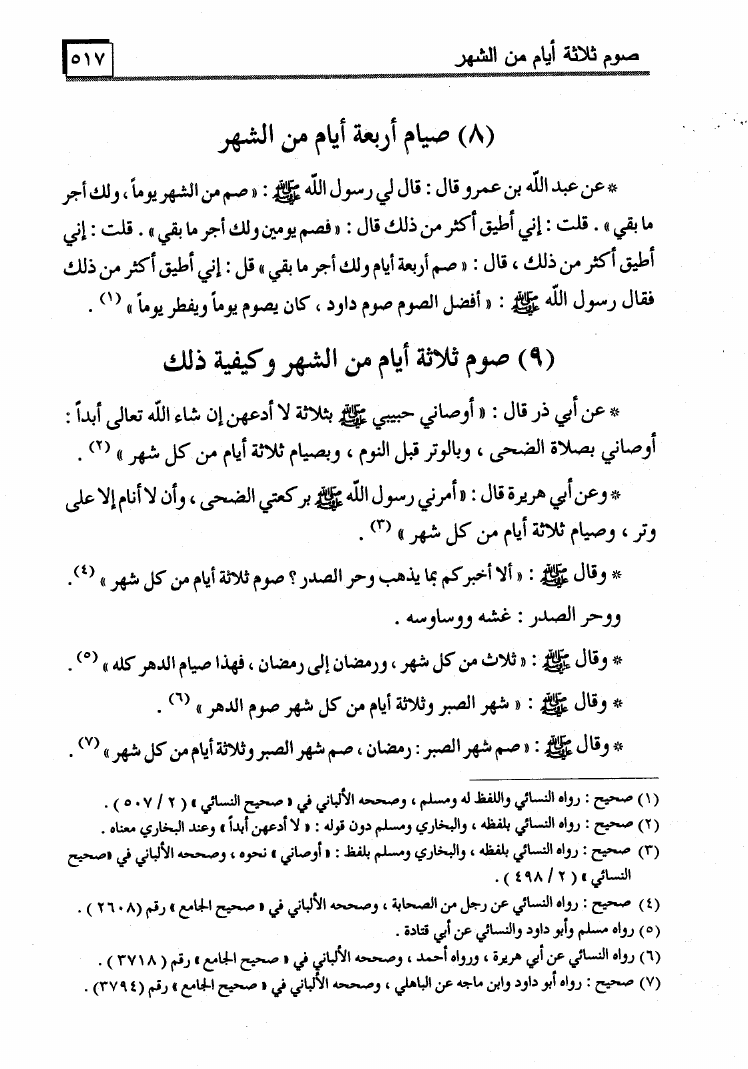 صوم ثلاثة أيام من الشهر
٥١٧
(٨) صيام أربعة أيام من الشهر
* عن عبد الله بن عمرو قال : قال لي رسول الله ﷺ : « صم من الشهر يوماً ، ولك أجر
ما بقي » . قلت : إني أطيق أكثر من ذلك قال : « فصم يومين ولك أجر ما بقي » . قلت : إني
أطيق أكثر من ذلك ، قال : « صم أربعة أيام ولك أجر ما بقي » قل : إني أطيق أكثر من ذلك
فقال رسول الله ﷺ : « أفضل الصوم صوم داود ، كان يصوم يوماً ويفطر يوماً » (١) .
(٩) صوم ثلاثة أيام من الشهر وكيفية ذلك
* عن أبي ذر قال : « أوصاني حبيبي ﷺ بثلاثة لا أدعهن إن شاء الله تعالى أبداً :
أوصاني بصلاة الضحى ، وبالوتر قبل النوم ، وبصيام ثلاثة أيام من كل شهر » (٢) .
* وعن أبي هريرة قال : « أمرني رسول الله ﷺ بركعتي الضحى ، وأن لا أنام إلا على
وتر ، وصيام ثلاثة أيام من كل شهر » (٣) .
* وقال ﷺ : « ألا أخبركم بما يذهب وحر الصدر ؟ صوم ثلاثة أيام من كل شهر » (٤) .
ووحر الصدر : غشه ووساوسه .
* وقال ﷺ : « ثلاث من كل شهر ، ورمضان إلى رمضان ، فهذا صيام الدهر كله » (٥) .
* وقال ﷺ : « شهر الصبر وثلاثة أيام من كل شهر صوم الدهر » (٦) .
* وقال ﷺ : « صم شهر الصبر : رمضان ، صم شهر الصبر وثلاثة أيام من كل شهر » (٧) .
(١) صحيح : رواه النسائي واللفظ له ومسلم ، وصححه الألباني في « صحيح النسائي » ( ٢ / ٥٠٧ ) .
(٢) صحيح : رواه النسائي بلفظه ، والبخاري ومسلم دون قوله : « لا أدعهن أبداً » وعند البخاري معناه .
(٣) صحيح : رواه النسائي بلفظه ، والبخاري ومسلم بلفظ : « أوصاني » نحوه ، وصححه الألباني في « صحيح
النسائي » ( ٢ / ٤٩٨ ) .
(٤) صحيح : رواه النسائي عن رجل من الصحابة ، وصححه الألباني في « صحيح الجامع » رقم (٢٦٠٨ ) .
(٥) رواه مسلم وأبو داود والنسائي عن أبي قتادة .
(٦) رواه النسائي عن أبي هريرة ، ورواه أحمد ، وصححه الألباني في « صحيح الجامع » رقم ( ٣٧١٨ ) .
(٧) صحيح : رواه أبو داود وابن ماجه عن الباهلي ، وصححه الألباني في « صحيح الجامع » رقم (٣٧٩٤) .